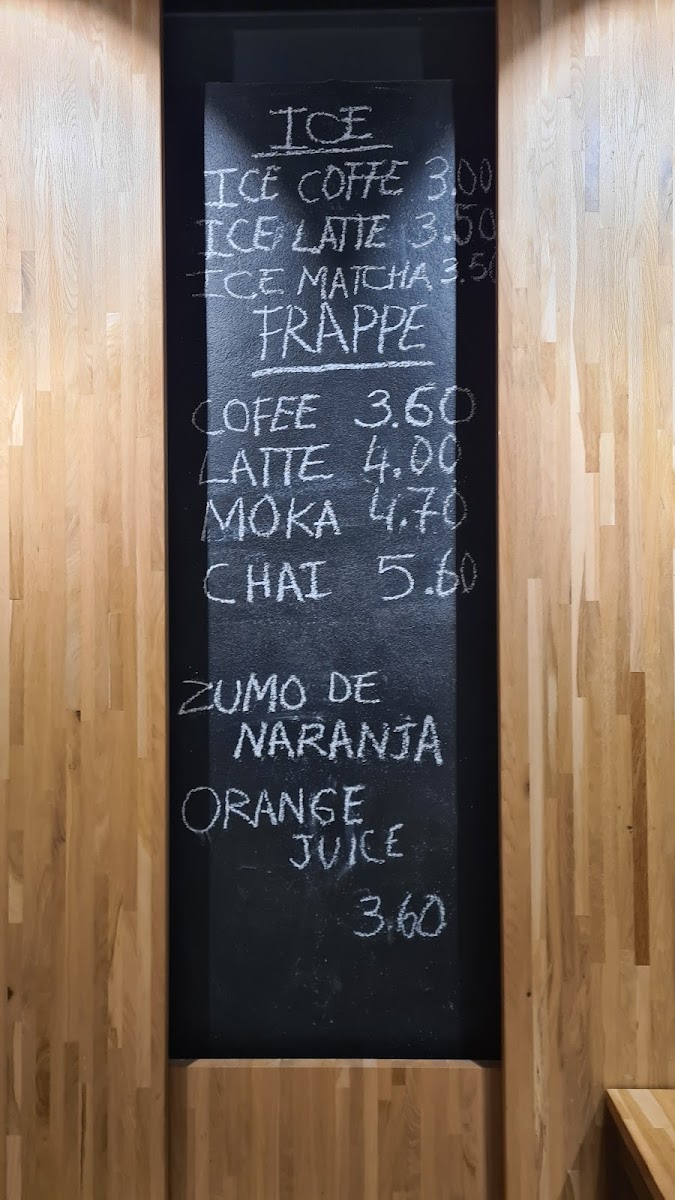 ICE
ICE COFFE 3.00
ICE LATTE 3.50
ICE MATCHA 3.50
FRAPPE
COFEE 3.60
LATTE 4.00
MOKA 4.70
CHAI 5.60
ZUMO DE
NARANJA
ORANGE
JUICE
3.60